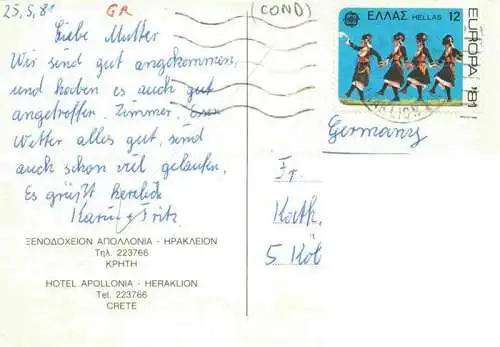 25.5.81
GR
(COND)
Liebe Mutter
Wir sind gut angekommen,
und haben es auch gut
angetroffen. Zimmer,
Wetter alles gut, sind
auch schon viel gelaufen,
Es grüßt herzlich
Karin + Fritz
ΞΕΝΟΔΟΧΕΙΟΝ ΑΠΟΛΛΟΝΙΑ - ΗΡΑΚΛΕΙΟΝ
Τηλ. 223766
ΚΡΗΤΗ
HOTEL APOLLONIA - HERAKLION
Tel. 223766
CRETE
ΕΛΛΑΣ HELLAS 12
EUROPA '81
Germany
Fr.
Kath.
5 Köl